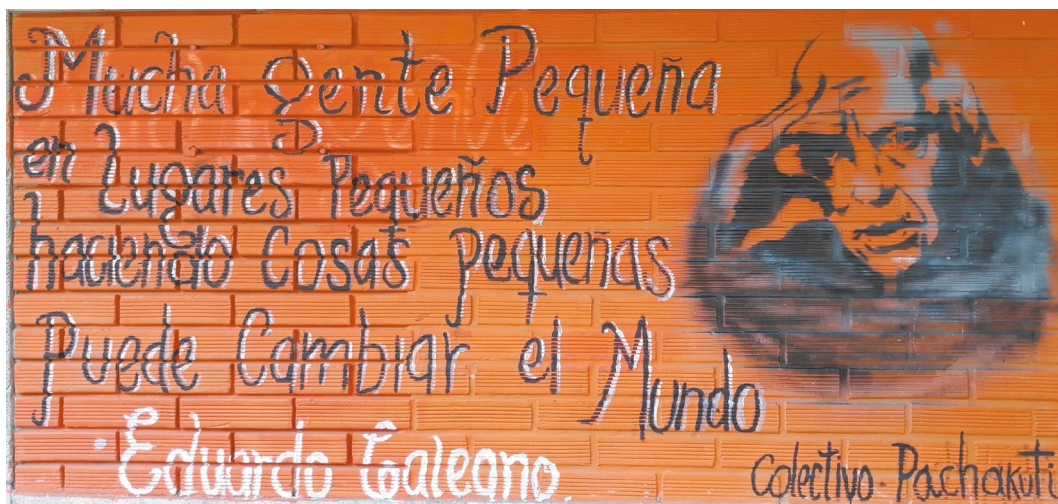 Mucha Gente Pequeña
en Lugares Pequeños
haciendo Cosas pequeñas
Puede Cambiar el Mundo
Eduardo Galeano.
Colectivo. Pachakuti